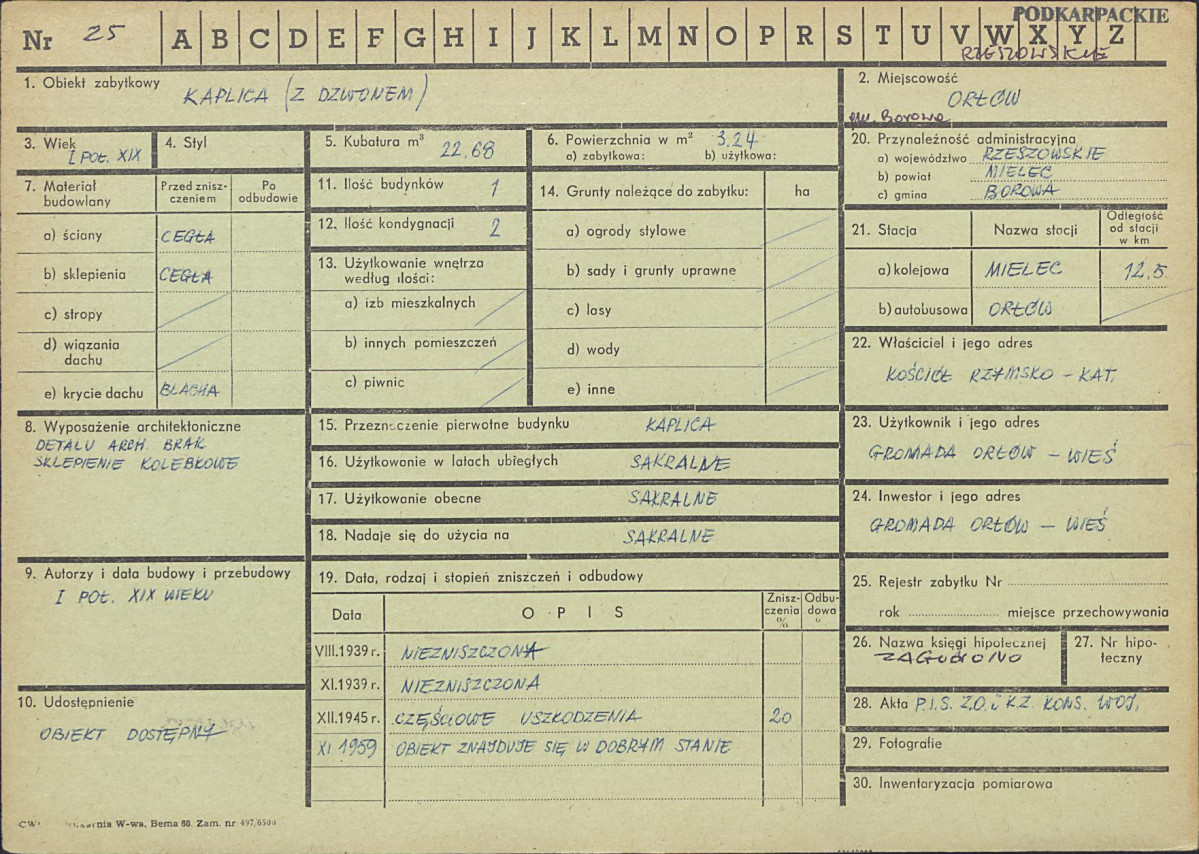 PODKARPACKIE
Nr 25 A B C D E F G H I J K L M N O P R S T U V W X Y Z
RZESZOWSKIE
1. Obiekt zabytkowy
KAPLICA (Z DZWONEM)
2. Miejscowość
ORŁÓW
gm. Borowa
3. Wiek
I POŁ. XIX
4. Styl
5. Kubatura m³ 22,68
6. Powierzchnia w m² 3.24
a) zabytkowa: b) użytkowa:
7. Materiał budowlany
Przed znisz-
czeniem
Po
odbudowie
a) ściany CEGŁA
b) sklepienia CEGŁA
c) stropy
d) wiązania
dachu
e) krycie dachu BLACHA
8. Wyposażenie architektoniczne
DETALU ARCH. BRAK
SKLEPIENIE KOLEBKOWE
9. Autorzy i data budowy i przebudowy
I POŁ. XIX WIEKU
10. Udostępnienie
OBIEKT DOSTĘPNY
11. Ilość budynków 1
12. Ilość kondygnacji 2
13. Użytkowanie wnętrza
według ilości:
a) izb mieszkalnych
b) innych pomieszczeń
c) piwnic
14. Grunty należące do zabytku: ha
a) ogrody stylowe
b) sady i grunty uprawne
c) lasy
d) wody
e) inne
15. Przeznaczenie pierwotne budynku KAPLICA
16. Użytkowanie w latach ubiegłych SAKRALNE
17. Użytkowanie obecne SAKRALNE
18. Nadaje się do użycia na SAKRALNE
19. Data, rodzaj i stopień zniszczeń i odbudowy
Data OPIS Znisz-
czenia
% Odbu-
dowa
VIII.1939 r. NIEZNISZCZONA
XI.1939 r. NIEZNISZCZONA
XII.1945 r. CZĘŚCIOWE USZKODZENIA 20
XI 1959 OBIEKT ZNAJDUJE SIĘ W DOBRYM STANIE
20. Przynależność administracyjna
a) województwo RZESZOWSKIE
b) powiat MIELEC
c) gmina BOROWA
21. Stacja Nazwa stacji Odległość
od stacji
w km
a) kolejowa MIELEC 12.5
b) autobusowa ORŁÓW
22. Właściciel i jego adres
KOŚCIÓŁ RZYMSKO - KAT.
23. Użytkownik i jego adres
GROMADA ORŁÓW - WIEŚ
24. Inwestor i jego adres
GROMADA ORŁÓW - WIEŚ
25. Rejestr zabytku Nr
rok miejsce przechowywania
26. Nazwa księgi hipotecznej
ZAGUBIONO
27. Nr hipo-
teczny
28. Akta P.I.S. Z.O. i K.Z. KONS. WOJ.
29. Fotografie
30. Inwentaryzacja pomiarowa
W-wa, Bema 60. Zam. nr 497/6500